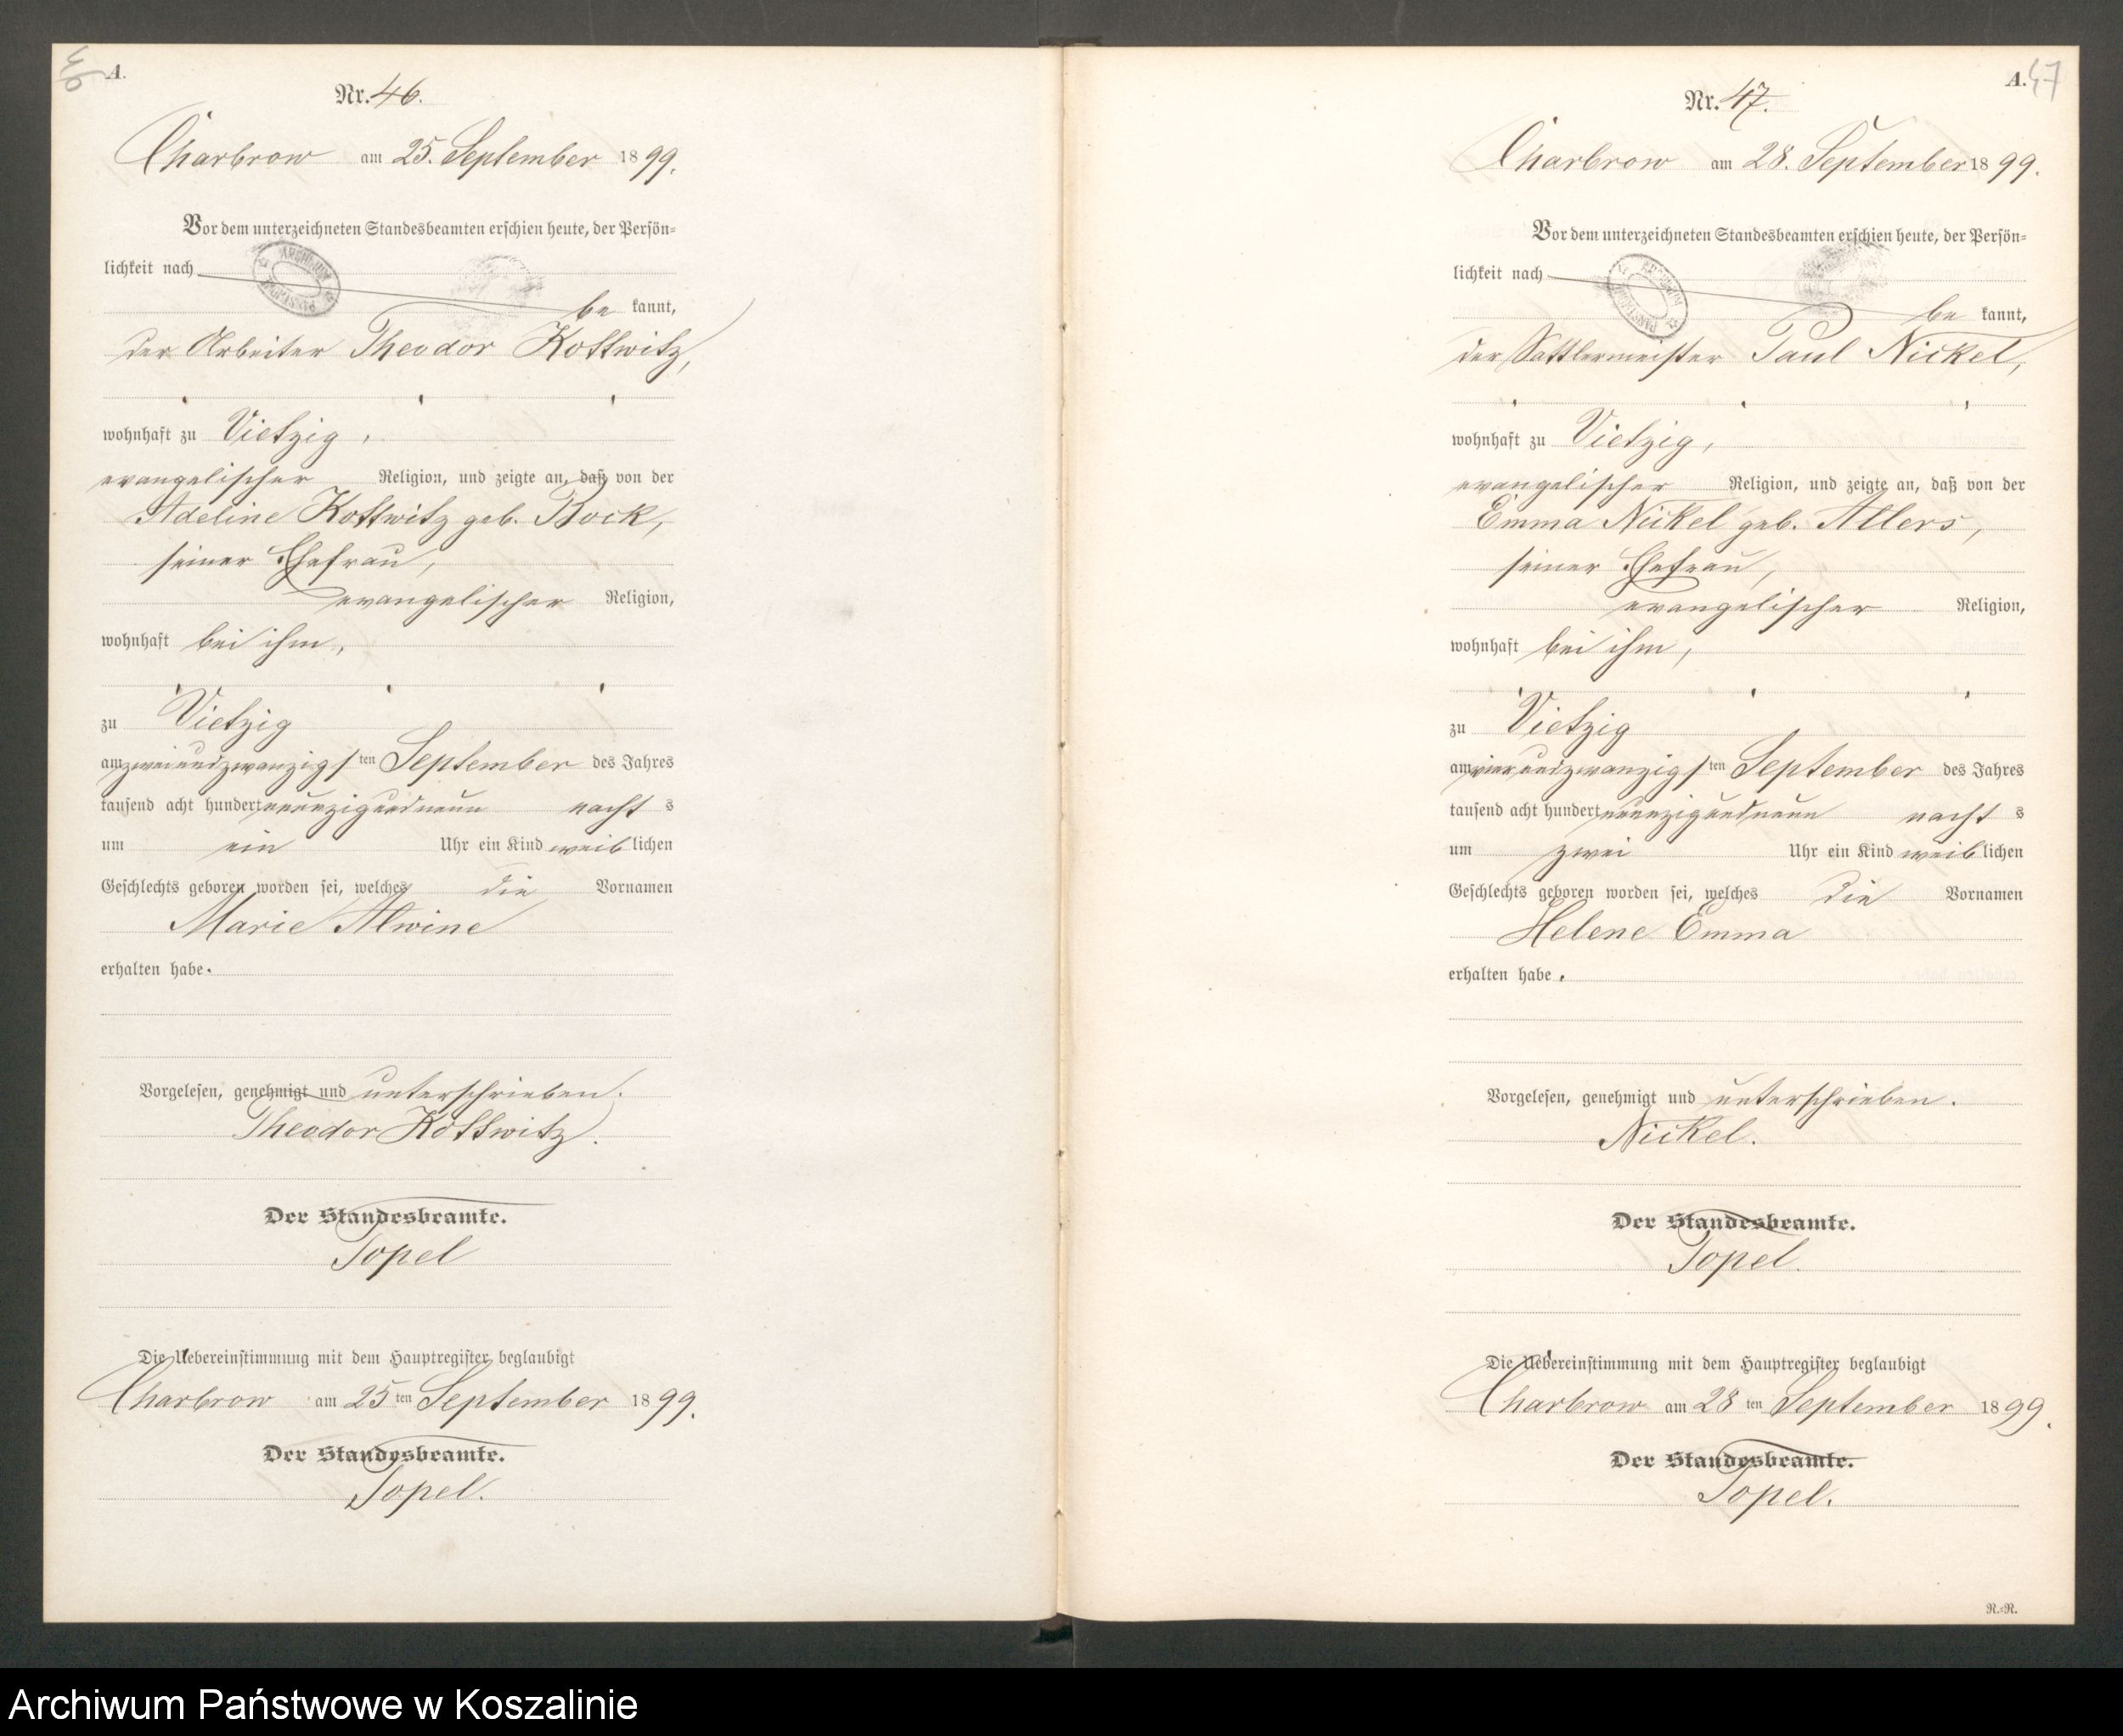 A.
Nr. 46.
Charbrow am 25. September 1899.
Vor dem unterzeichneten Standesbeamten erschien heute, der Persön-
lichkeit nach
be kannt,
der Arbeiter Theodor Kottwitz,
wohnhaft zu Vietzig,
evangelischer Religion, und zeigte an, daß von der
Adeline Kottwitz geb. Bock,
seiner Ehefrau,
evangelischer Religion,
wohnhaft bei ihm,
zu Vietzig
am zweiundzwanzigsten September des Jahres
tausend acht hundert neunzigundneun nachts
um ein Uhr ein Kind weiblichen
Geschlechts geboren worden sei, welches die Vornamen
Marie Alwine
erhalten habe.
Vorgelesen, genehmigt und unterschrieben.
Theodor Kottwitz.
Der Standesbeamte.
Topel
Die Uebereinstimmung mit dem Hauptregister beglaubigt
Charbrow am 25ten September 1899.
Der Standesbeamte.
Topel.
A. 47
Nr. 47.
Charbrow am 28. September 1899.
Vor dem unterzeichneten Standesbeamten erschien heute, der Persön-
lichkeit nach
be kannt,
der Sattlermeister Paul Nickel,
wohnhaft zu Vietzig,
evangelischer Religion, und zeigte an, daß von der
Emma Nickel geb. Allers,
seiner Ehefrau,
evangelischer Religion,
wohnhaft bei ihm,
zu Vietzig
am vierundzwanzigsten September des Jahres
tausend acht hundert neunzigundneun nachts
um zwei Uhr ein Kind weiblichen
Geschlechts geboren worden sei, welches die Vornamen
Helene Emma
erhalten habe.
Vorgelesen, genehmigt und unterschrieben.
Nickel.
Der Standesbeamte.
Topel.
Die Uebereinstimmung mit dem Hauptregister beglaubigt
Charbrow am 28ten September 1899.
Der Standesbeamte.
Topel.
R.=R.
Archiwum Państwowe w Koszalinie